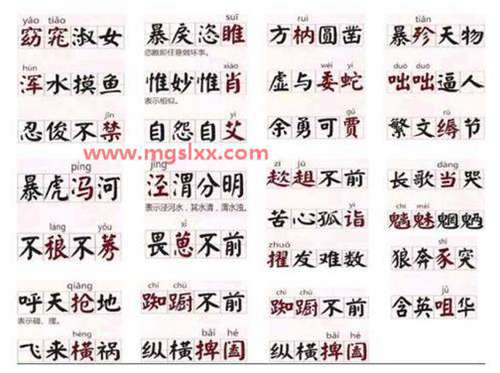 yǎo tiǎo
窈窕淑女
hún
浑水摸鱼
jīn
忍俊不禁
píng
暴虎冯河
láng yǒu
不稂不莠
qiāng
呼天抢地
表示碰、撞。
hèng
飞来横祸
suī
暴戾恣睢
恣睢即任意做坏事。
xiào
惟妙惟肖
表示相似。
yì
自怨自艾
www.mgslxx.com
jīng
泾渭分明
表示泾河水，其水清，渭水浊。
xǐ
畏葸不前
chí chú
踟蹰不前
bǎi hé
纵横捭阖
ruì
方枘圆凿
wēi yí
虚与委蛇
gǔ
余勇可贾
zī jū
趑趄不前
yì
苦心孤诣
zhuó
擢发难数
chí chú
踟蹰不前
bǎi hé
纵横捭阖
tiǎn
暴殄天物
duō duō
咄咄逼人
rù
繁文缛节
dàng
长歌当哭
魑魅魍魉
狼奔豕突
含英咀华